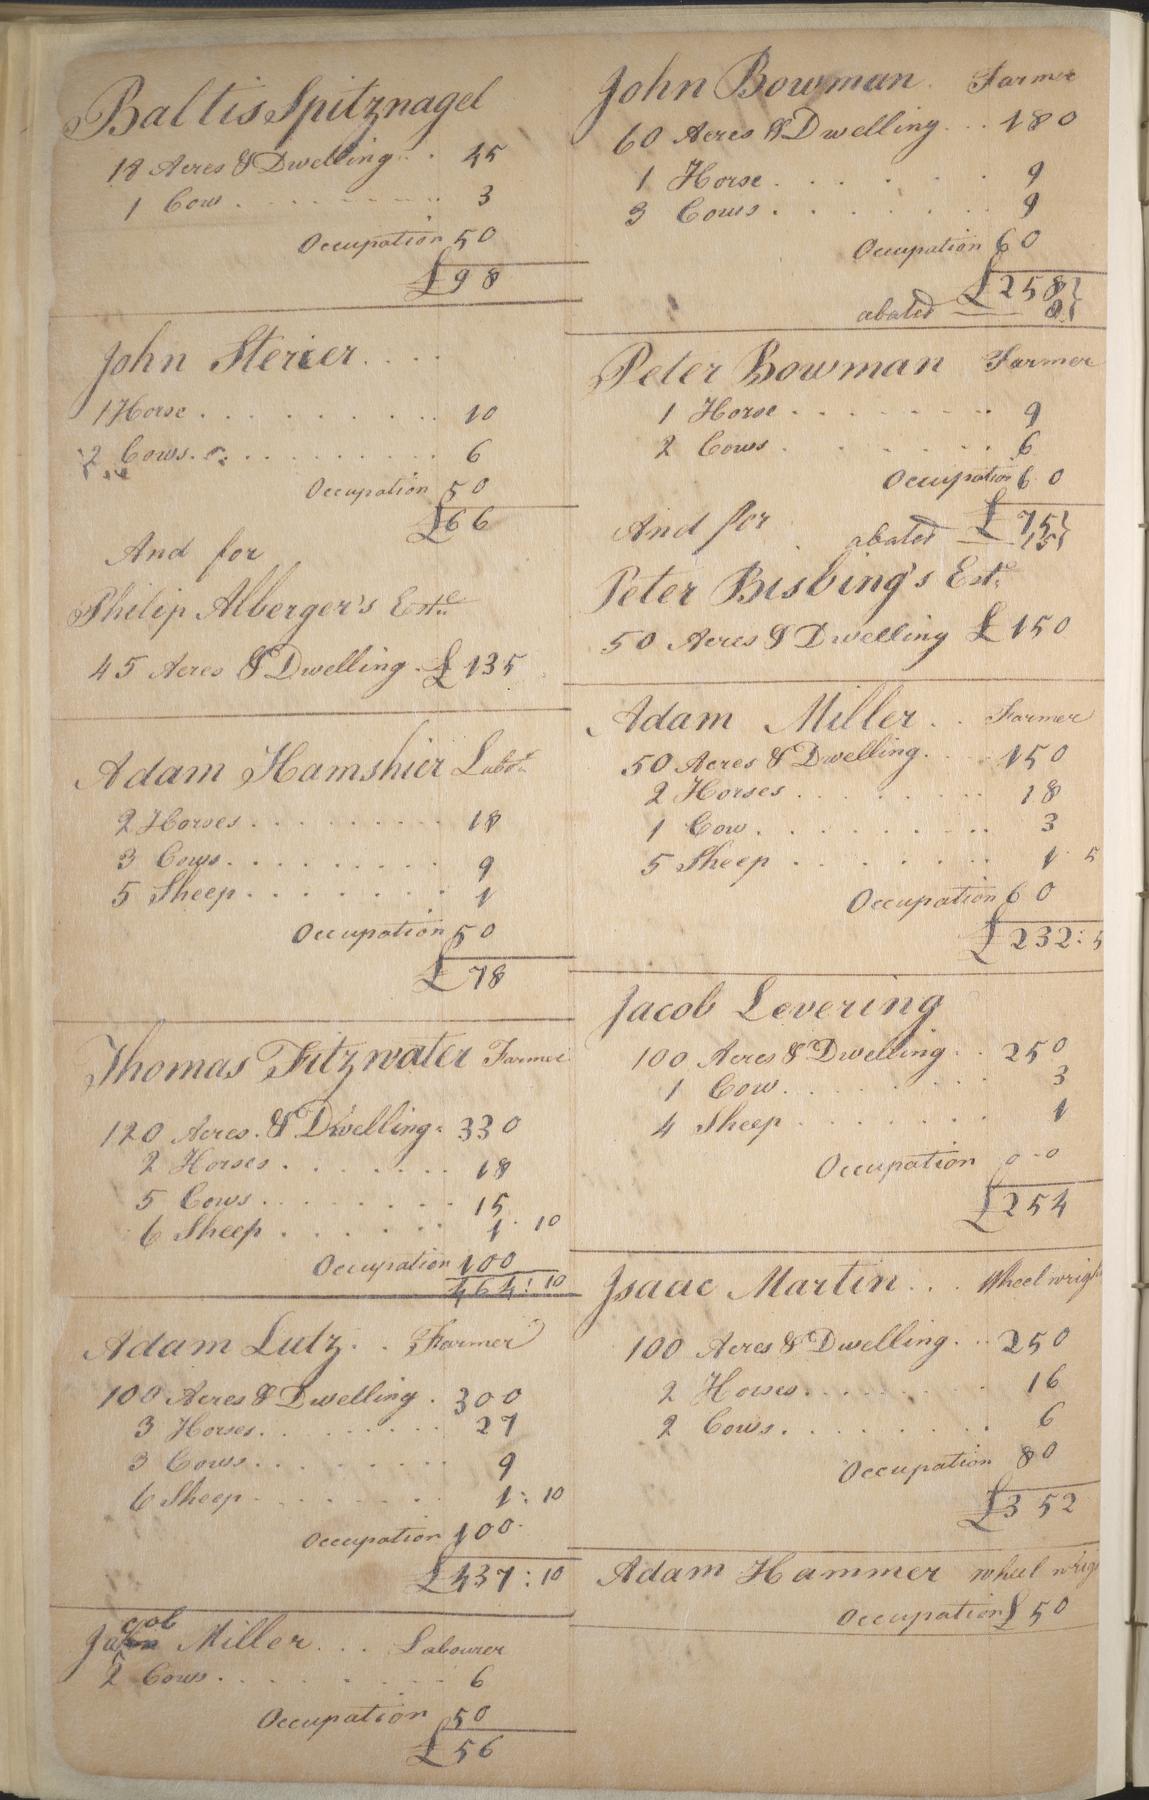 Baltis Spitznagel
18 Acres & Dwelling . . 45
1 Cow . . . . . . . . 3
Occupation 50
£98
John Sterier . . . .
1 Horse . . . . . . . . . . 10
2 Cows . . . . . . . . . . 6
Occupation 50
£66
And for
Philip Alberger's Este.
45 Acres & Dwelling . £135
Adam Hamshier Labor.
2 Horses . . . . . . . . . 18
3 Cows . . . . . . . . . 9
5 Sheep . . . . . . . 1
Occupation 50
£78
Thomas Fitzwater Farmer
120 Acres . & Dwelling . 330
2 Horses . . . . . . . 18
5 Cows . . . . . . . . 15
6 Sheep . . . . . . 1 . 10
Occupation 100
464 : 10
Adam Lutz . . Farmer
100 Acres & Dwelling . 300
3 Horses . . . . . . . . 27
3 Cows . . . . . . . . 9
6 Sheep . . . . . . . 1 : 10
Occupation 100
£437 : 10
Jacob Miller . . . Labourer
2 Cows . . . . . . . . 6
Occupation 50
£56
John Bowman . Farmer
60 Acres & Dwelling . . . 180
1 Horse . . . . . . . 9
3 Cows . . . . . . . . 9
Occupation 60
£258
abated 8
Peter Bowman Farmer
1 Horse . . . . . . . . 9
2 Cows . . . . . . . 6
Occupation 60
£75
And for abated 15
Peter Bisbing's Este.
50 Acres & Dwelling £150
Adam Miller . . Farmer
50 Acres & Dwelling . . . 150
2 Horses . . . . . . . . 18
1 Cow . . . . . . . . . 3
5 Sheep . . . . . . . 1 . 5
Occupation 60
£232 : 5
Jacob Levering
100 Acres & Dwelling . . 250
1 Cow . . . . . . . . 3
4 Sheep . . . . . . . 1
Occupation 0-0
£254
Isaac Martin . . . Wheel wrigh
100 Acres & Dwelling . . . 250
2 Horses . . . . . . . . 16
2 Cows . . . . . . . . . 6
Occupation 80
£352
Adam Hammer wheel wrig
Occupation £50